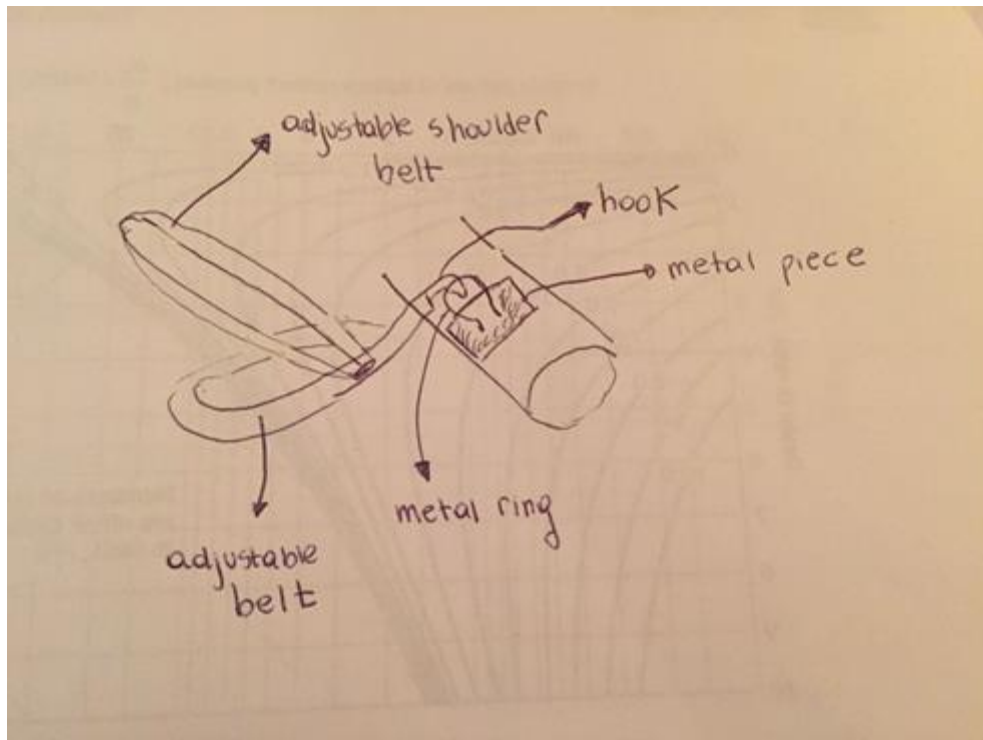 adjustable shoulder
belt
hook
metal piece
metal ring
adjustable
belt